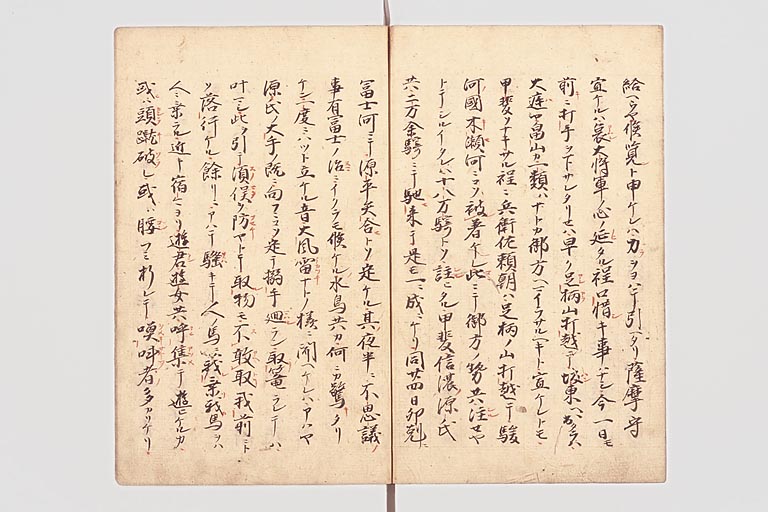 給ヘクヤ候覧ト申ケレハ力ヲヨハテ引ヘタリ薩摩守
宣ケルハ哀大将軍ノ心ノ延タル程口惜キ事ナシ今一日モ
前ニ打手ヲ下サレタリセハ早ク足柄山打越テ坂東ヘ
大庭ヤ畠山カ一類ハナトカ御方ヘマイラサルヘキト宣ケレトモ
甲斐ソナキサル程ニ兵衛佐頼朝ハ足柄ノ山打越テ駿
河國木瀬河ニコソ被着ケレ此ニテ御方ノ勢共注セヤ
トテシルイタレハ十八万騎トソ註シタル甲斐信濃源氏
共二万余騎ニテ馳来テ是モ一ニ成ニケリ同廿四日卯剋ニ
冨士河ニテ源平矢合トソ定ケル其夜半ニ不思議ノ
事有冨士ノ沼ニイクラモ候ケル水鳥共カ何ニカ驚タリ
ケン一度ニハツト立ケル音大風雷ナトノ様ニ聞ヘケレハアハヤ
源氏ノ大手ノ既ニ向フコソ定テ搦手廻ラン取篭ラレテハ
叶マシ此ヲ引テ 防ヤトテ取物モ不敢取我前ニト
ソ落行ケル餘リニアハテ騒キテ人ノ馬ニハ我乗我馬ヲハ
人ニ乗ラル近キ宿ヨリ遊君遊女共呼集テ遊ヒケルカ
或ハ頭蹴破レ或ハ腰フミ折レテ喚叫者多カリケリ